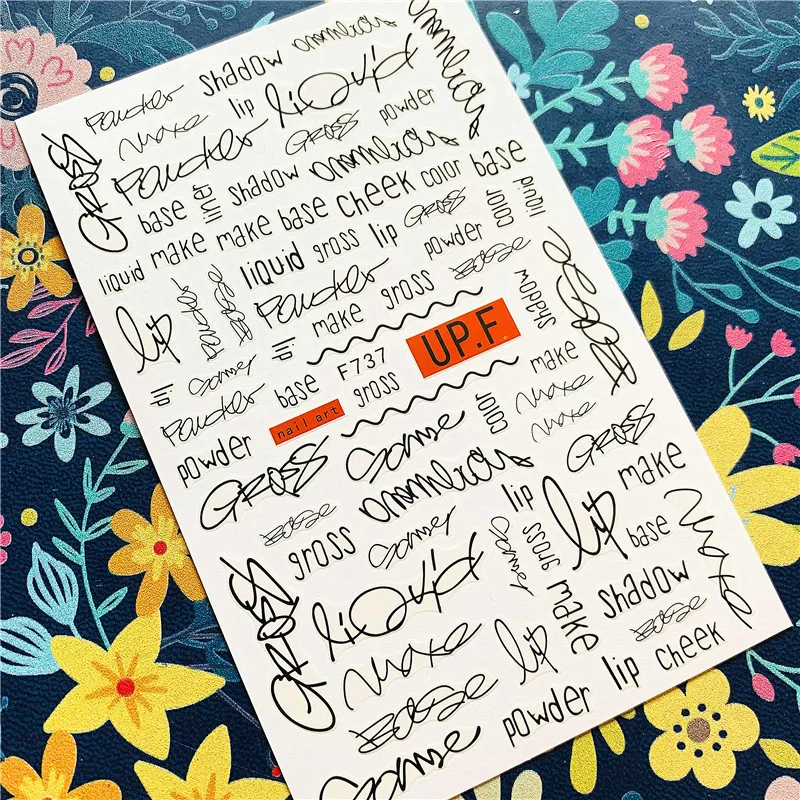 Powder shadow
make lip liquid
Gross powder
Powder Gross
base liner shadow
base cheek color base
liquid make make
liquid gross lip Gross color liquid
lip Powder powder Base
Powder Base make gross shadow
lip
lip
base F737 UP.F
Powder nail art gross make
powder color make
make
Gross Gross
lip make
Base gross lip base make
Gross liquid gross lip
make shadow
make lip Base
Base powder lip cheek